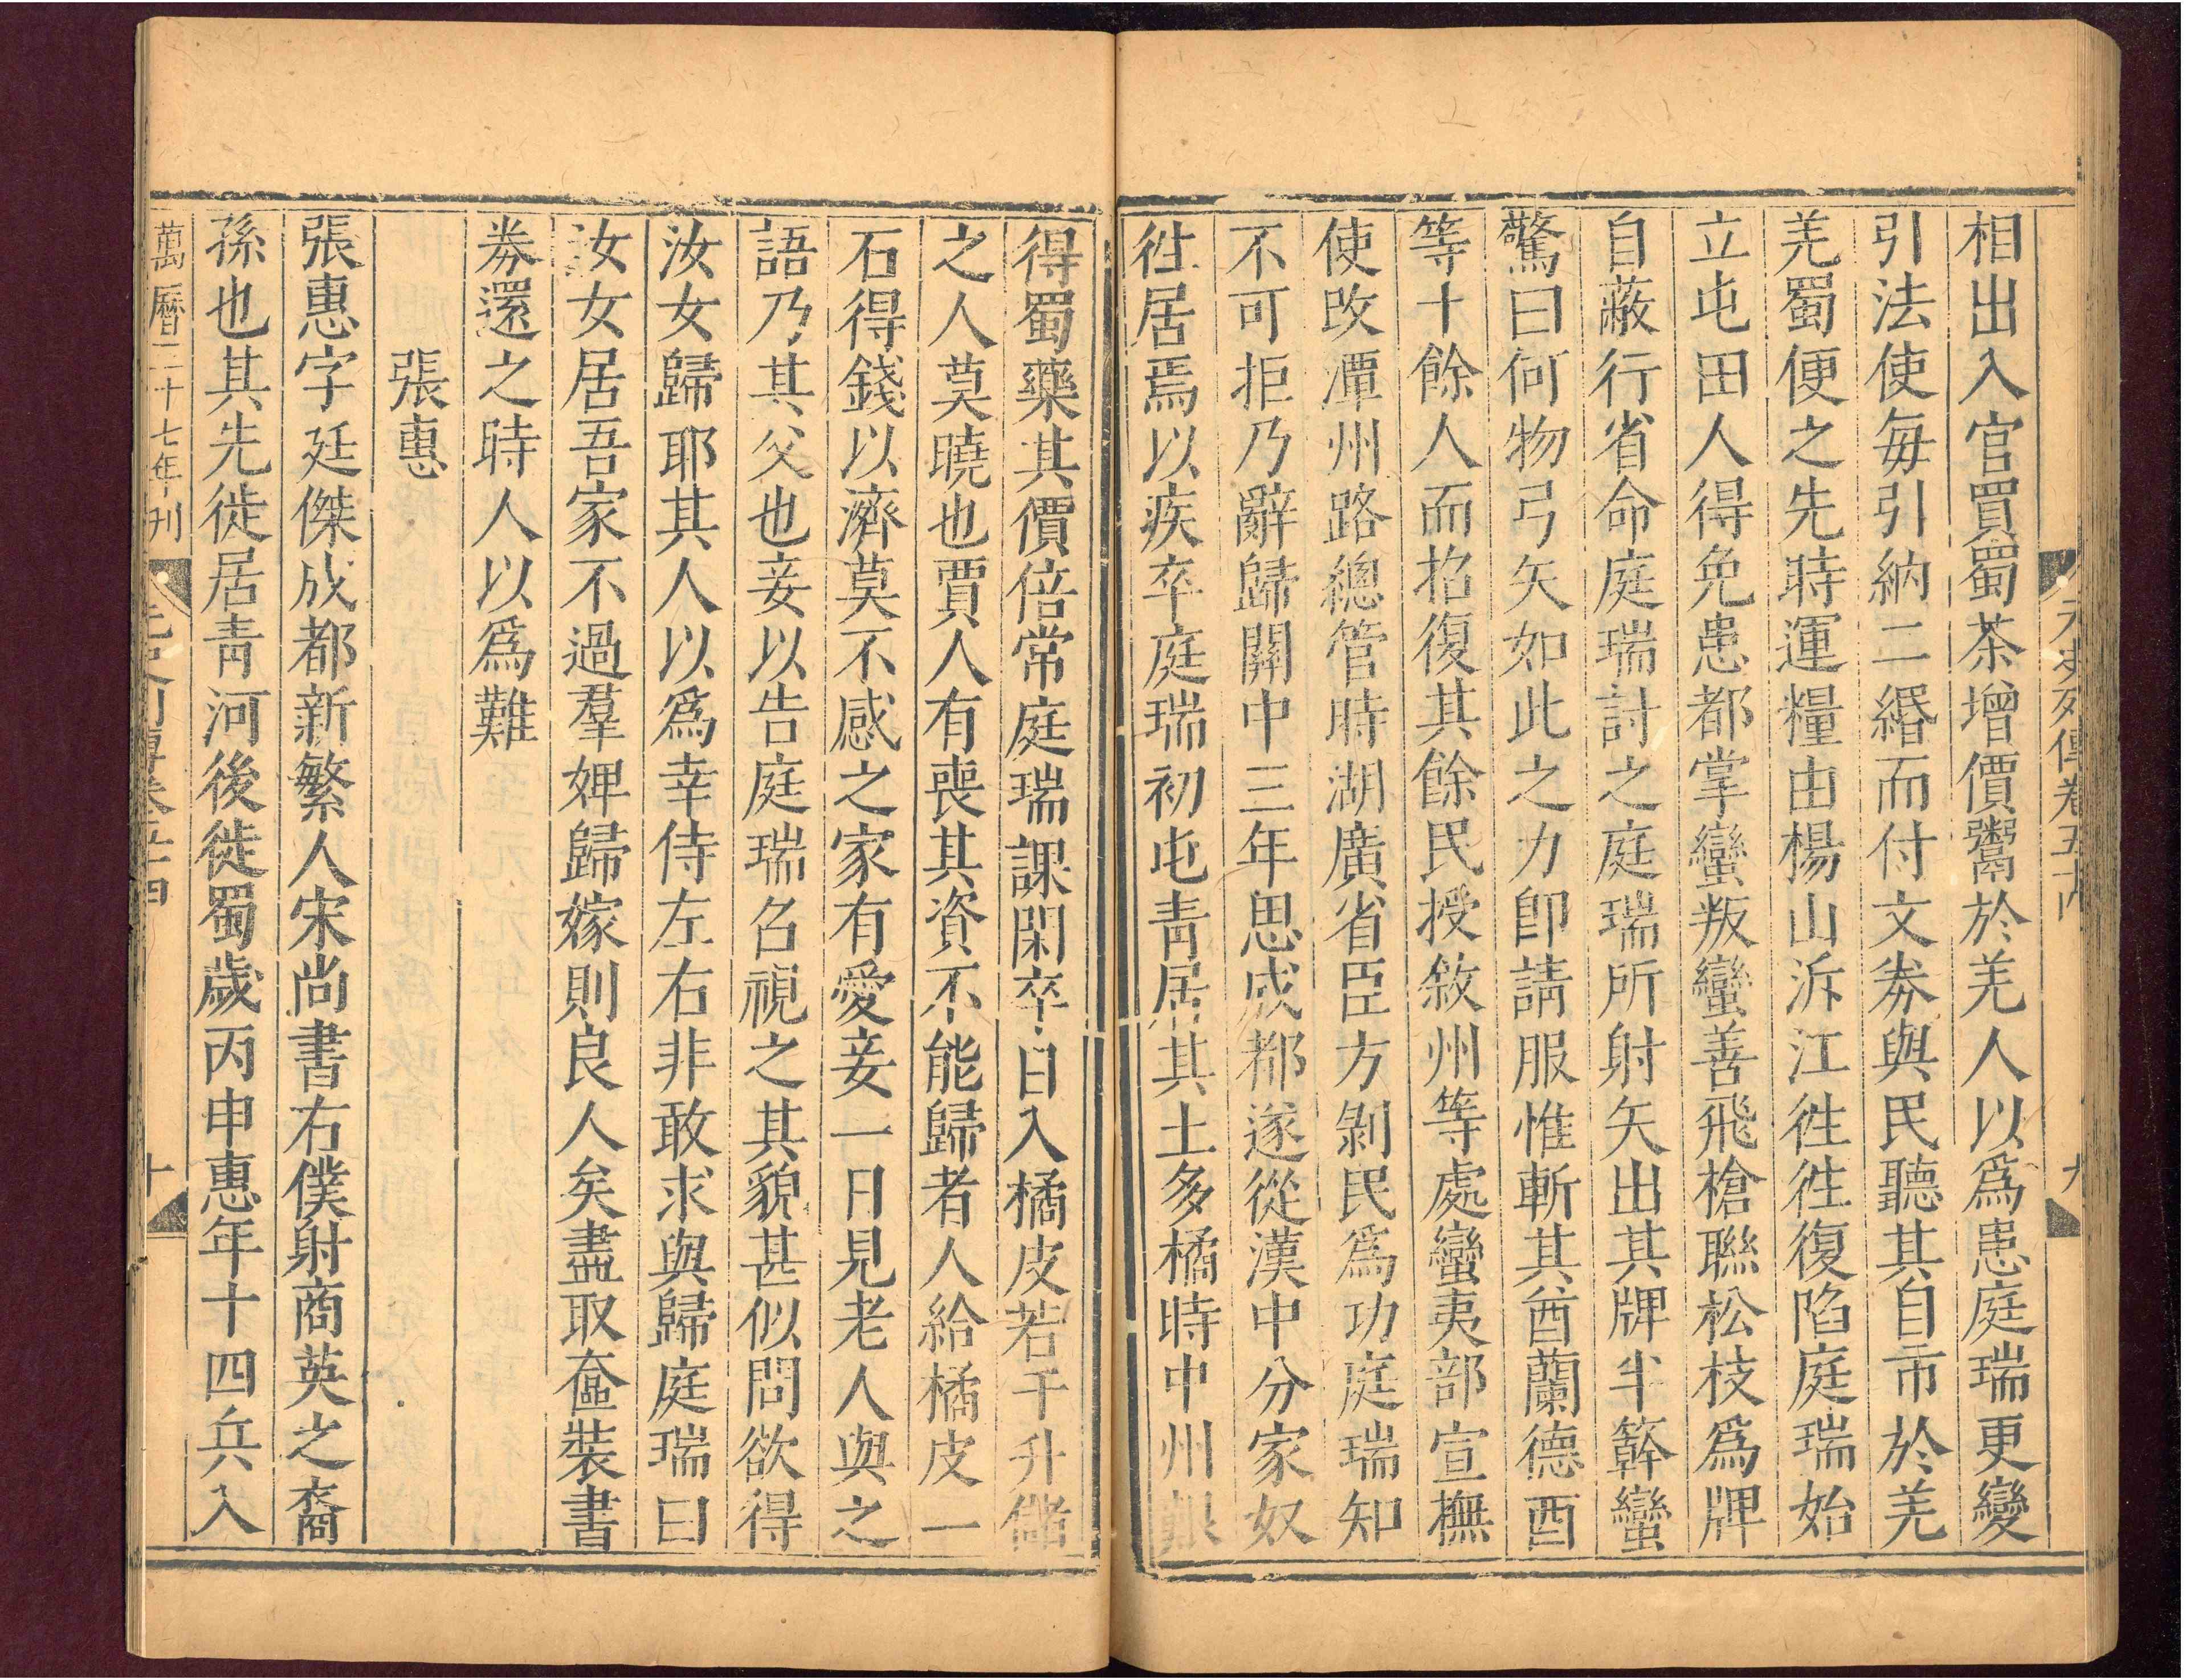 元史列傳卷五十四
九
相出入官買蜀茶增價鬻於羌人以為患庭瑞更變
引法使每引納二緡而付文券與民聽其自市於羌
羌蜀便之先時運糧由楊山泝江徃徃復陷庭瑞始
立屯田人得免患都掌蠻叛蠻善飛槍聯松枝為牌
自蔽行省命庭瑞討之庭瑞所射矢出其牌半簳蠻
驚曰何物弓矢如此之力卽請服惟斬其酋蘭德酉
等十餘人而招復其餘民授敘州等處蠻夷部宣撫
使改潭州路總管時湖廣省臣方剝民為功庭瑞知
不可拒乃辭歸關中三年思成都遂從漢中分家奴
徃居焉以疾卒庭瑞初屯青居其土多橘時中州艱
得蜀藥其價倍常庭瑞課閑卒日入橘皮若干升儲
之人莫曉也賈人有喪其資不能歸者人給橘皮一
石得錢以濟莫不感之家有愛妾一日見老人與之
語乃其父也妾以告庭瑞召視之其貌甚似問欲得
汝女歸耶其人以為幸侍左右非敢求與歸庭瑞曰
汝女居吾家不過羣婢歸嫁則良人矣盡取奩裝書
券還之時人以為難
張惠
張惠字廷傑成都新繁人宋尚書右僕射商英之裔
孫也其先徙居青河後徙蜀歲丙申惠年十四兵入
萬曆二十七年刊
元史列傳卷五十四
十